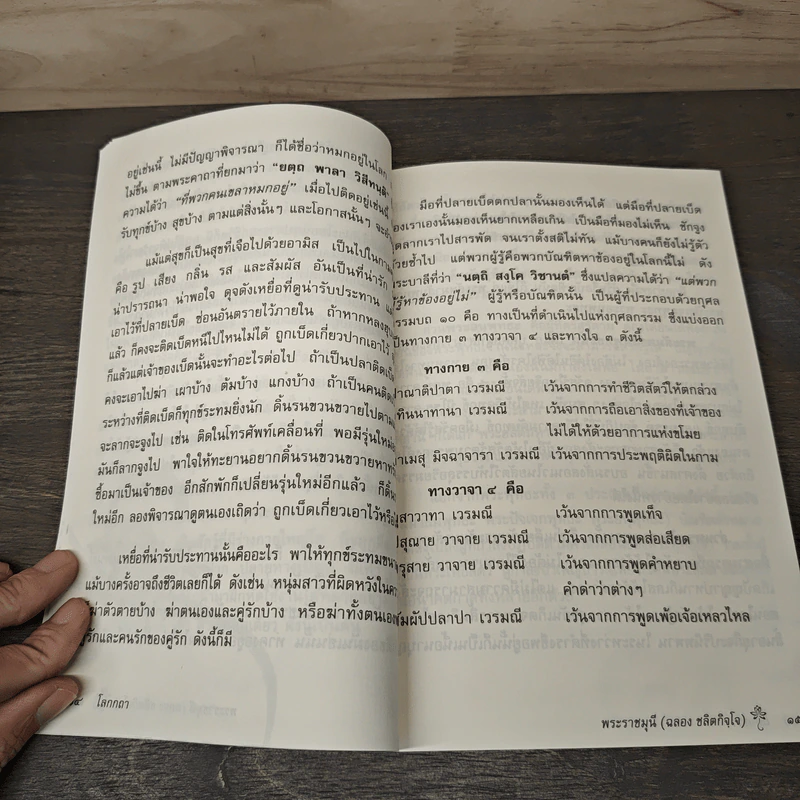 อยู่เช่นนี้ ไม่มีปัญญาพิจารณา ก็ได้ชื่อว่าหมกอยู่ในโลก
ไม่ขึ้น ตามพระคาถาที่ยกมาว่า “ยตฺถ พาลา วิสีทนฺติ”
ความได้ว่า “ที่พวกคนเขลาหมกอยู่” เมื่อไปติดอยู่เช่นนี้
รับทุกข์บ้าง สุขบ้าง ตามแต่สิ่งนั้นๆ และโอกาสนั้นๆ
แม้แต่สุขก็เป็นสุขที่เจือไปด้วยอามิส เป็นไปในกาม
คือ รูป เสียง กลิ่น รส และสัมผัส อันเป็นที่น่ารัก
น่าปรารถนา น่าพอใจ ดุจดังเหยื่อที่ดูน่ารับประทาน
เอาไว้ที่ปลายเบ็ด ซ่อนอันตรายไว้ภายใน ถ้าหากหลง
แล้ว ก็คงจะติดเบ็ดหนีไปไหนไม่ได้ ถูกเบ็ดเกี่ยวปากเอาไว้
ก็แล้วแต่เจ้าของเบ็ดนั้นจะทำอะไรต่อไป ถ้าเป็นปลาติดเบ็ด
คงจะเอาไปฆ่า เผาบ้าง ต้มบ้าง แกงบ้าง ถ้าเป็นคนติด
ระหว่างที่ติดเบ็ดก็ทุกข์ระทมยิ่งนัก ดิ้นรนขวนขวายไปตาม
จะลากจะจูงไป เช่น ติดในโทรศัพท์เคลื่อนที่ พอมีรุ่นใหม่
มันก็ลากจูงไป พาใจให้ทะยานอยากดิ้นรนขวนขวายหา
ซื้อมาเป็นเจ้าของ อีกสักพักก็เปลี่ยนรุ่นใหม่อีกแล้ว ก็ดิ้น
ใหม่อีก ลองพิจารณาดูตนเองเถิดว่า ถูกเบ็ดเกี่ยวเอาไว้หรือ
เหยื่อที่น่ารับประทานนั้นคืออะไร พาให้ทุกข์ระทม
แม้บางครั้งอาจถึงชีวิตเลยก็ได้ ดังเช่น หนุ่มสาวที่ผิดหวังใน
ฆ่าตัวตายบ้าง ฆ่าตนเองและคู่รักบ้าง หรือฆ่าทั้งตนเอง
รักและคนรักของคู่รัก ดังนี้ก็มี
๔ โลกกถา
มือที่ปลายเบ็ดตกปลานั้นมองเห็นได้ แต่มือที่ปลายเบ็ด
ของเราเองนั้นมองเห็นยากเหลือเกิน เป็นมือที่มองไม่เห็น ชักจูง
ฉุดลากเราไปสารพัด จนเราตั้งสติไม่ทัน แม้บางคนก็ยังไม่รู้ตัว
ด้วยซ้ำไป แต่พวกผู้รู้คือพวกบัณฑิตหาข้องอยู่ในโลกนี้ไม่ ดัง
พระบาลีที่ว่า “นตฺถิ สงฺโค วิชานตํ” ซึ่งแปลความได้ว่า “แต่พวก
ผู้รู้หาข้องอยู่ไม่” ผู้รู้หรือบัณฑิตนั้น เป็นผู้ที่ประกอบด้วยกุศล
กรรมบถ ๑๐ คือ ทางเป็นที่ดำเนินไปแห่งกุศลกรรม ซึ่งแบ่งออก
เป็นทางกาย ๓ ทางวาจา ๔ และทางใจ ๓ ดังนี้
ทางกาย ๓ คือ
ปาณาติปาตา เวรมณี เว้นจากการทำชีวิตสัตว์ให้ตกล่วง
ทินนาทานา เวรมณี เว้นจากการถือเอาสิ่งของที่เจ้าของ
ไม่ได้ให้ด้วยอาการแห่งขโมย
กาเมสุ มิจฉาจารา เวรมณี เว้นจากการประพฤติผิดในกาม
ทางวาจา ๔ คือ
มุสาวาทา เวรมณี เว้นจากการพูดเท็จ
ปิสุณาย วาจาย เวรมณี เว้นจากการพูดส่อเสียด
ผรุสาย วาจาย เวรมณี เว้นจากการพูดคำหยาบ
คำด่าว่าต่างๆ
สัมผัปปลาปา เวรมณี เว้นจากการพูดเพ้อเจ้อเหลวไหล
พระราชมุนี (ฉลอง ชลิตกิจฺโจ) ๑๕